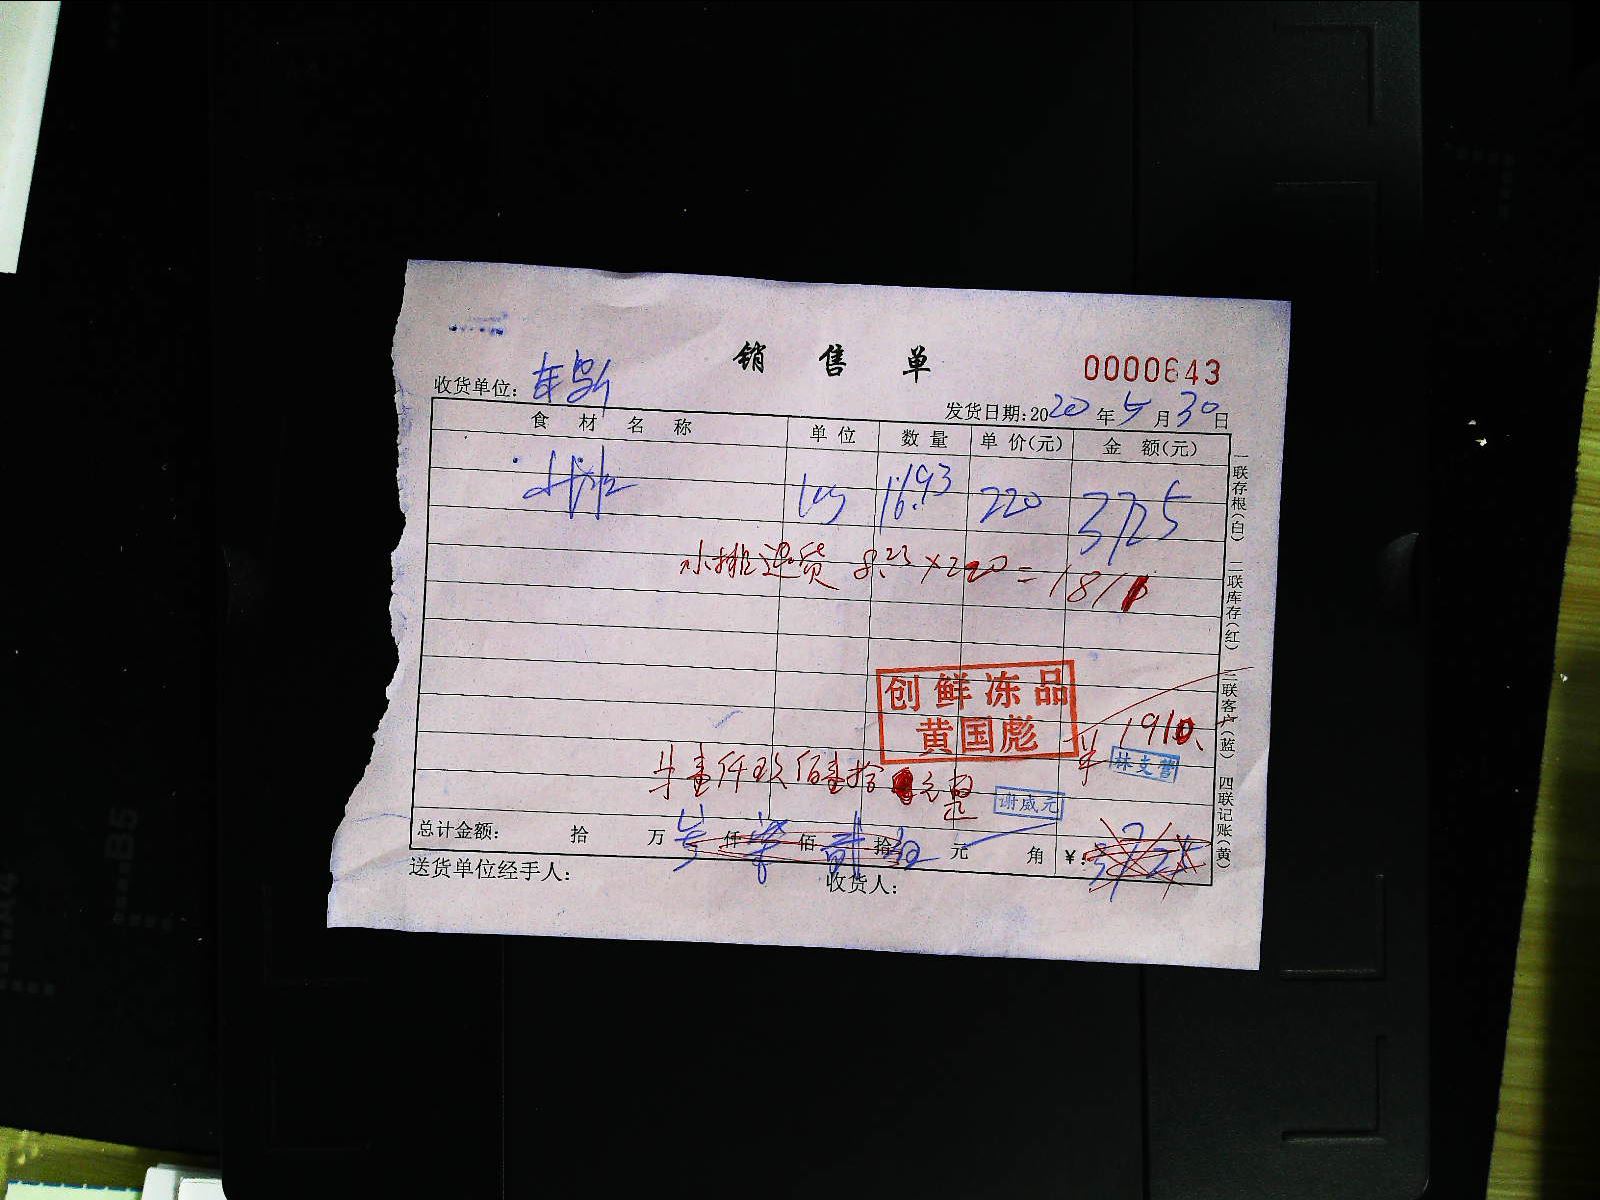 销售单
0000643
收货单位:
发货日期:2020年5月30日
食材名称 单位 数量 单价(元) 金额(元)
小排 kg 16.93 220 3725
小排退货 8.23×220=1811
创鲜冻品
黄国彪
1910.
林支营
壹仟玖佰壹拾元整
谢威元
总计金额: 拾 万 仟 柒 佰 贰 拾 元 角 ¥: 3725
送货单位经手人: 收货人:
一联存根(白) 二联库存(红) 三联客户(蓝) 四联记账(黄)
B5
A4